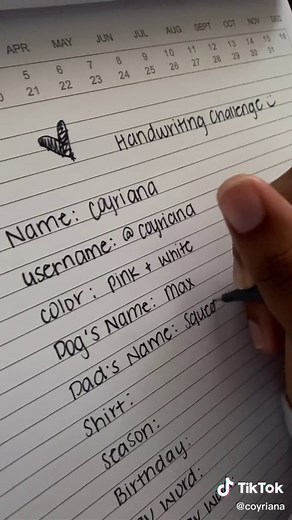 APR MAY JUN JUL AUG SEPT OCT NOV DEC
5 6 7 8 9 10 11 12 13 14 15 16
21 22 23 24 25 26 27 28 29 30 31
Handwriting Challenge
Name: coyriana
username: @coyriana
color: pink + white
Dog's Name: max
Dad's Name:
Shirt:
season:
Birthday:
word:
TikTok
@coyriana